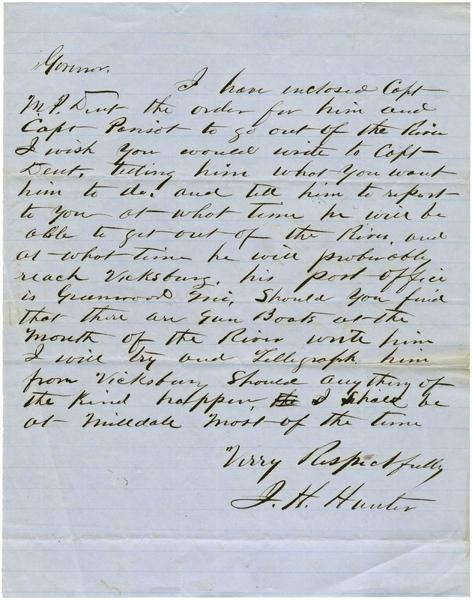 Governor.
I have enclosed Capt
M.P. Dent the order for him and
Capt Parisot to go out of the River
I wish you would write to Capt
Dent, telling him what you want
him to do. and tell him to report
to you at what time he will be
able to get out of the River. and
at what time he will proberably
reach Vicksburg. his post office
is Greenwood Miss, Should you find
that there are Gun Boats at the
Mouth of the River write him
I will try and Tellegraph him
from Vicksburg Should any thing of
the kind happen, I Shall be
at Milldale Most of the time
Very Respectfully
J. H. Hunter